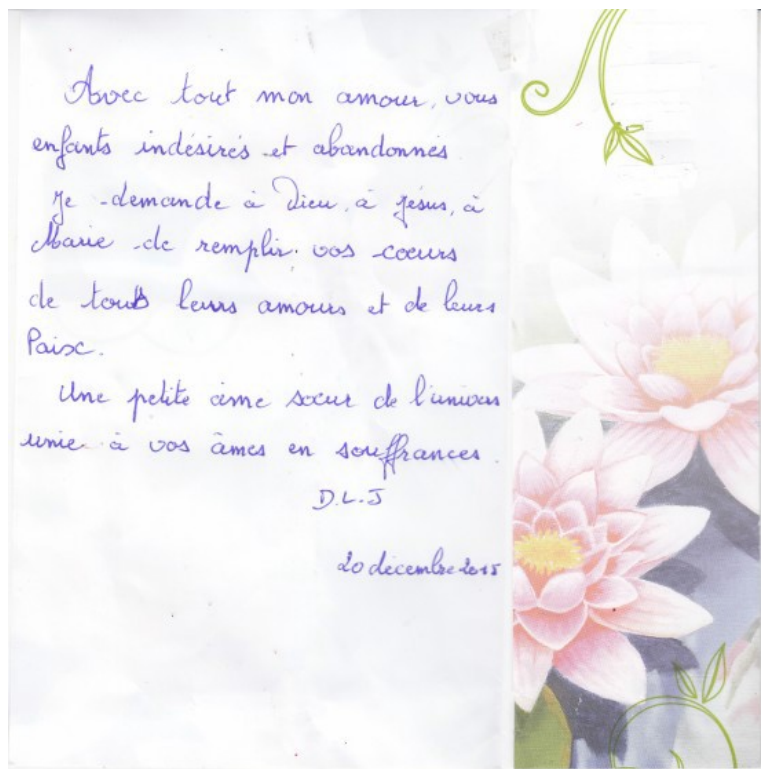 Avec tout mon amour, vous
enfants indésirés et abandonnés
Je demande à Dieu, à Jésus, à
Marie de remplir vos cœurs
de tous leurs amours et de leurs
Paix.
Une petite âme sœur de l'univers
unie à vos âmes en souffrances.
D.L.J
20 décembre 2015